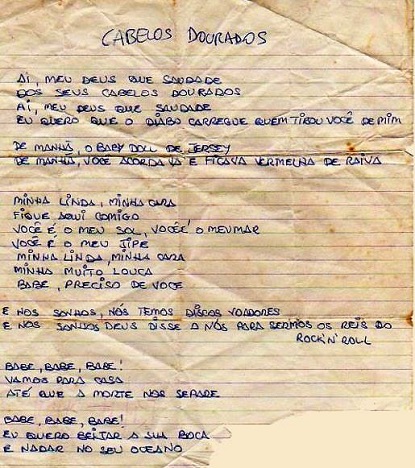 CABELOS DOURADOS
AI, MEU DEUS QUE SAUDADE
DOS SEUS CABELOS DOURADOS
AI, MEU DEUS QUE SAUDADE
EU QUERO QUE O DIABO CARREGUE QUEM TIROU VOCÊ DE MIM
DE MANHÃ, O BABY DOLL DE JERSEY
DE MANHÃ, VOCÊ ACORDAVA E FICAVA VERMELHA DE RAIVA
MINHA LINDA, MINHA CARA
FIQUE AQUI COMIGO
VOCÊ É O MEU SOL, VOCÊ É O MEU MAR
VOCÊ É O MEU JIPE
MINHA LINDA, MINHA CARA
MINHA MUITO LOUCA
BABE, PRECISO DE VOCÊ
E NOS SONHOS, NÓS TEMOS DISCOS VOADORES
E NOS SONHOS DEUS DISSE A NÓS PARA SERMOS OS REIS DO
ROCK'N'ROLL
BABE, BABE, BABE!
VAMOS PARA CASA
ATÉ QUE A MORTE NOS SEPARE
BABE, BABE, BABE!
EU QUERO BEIJAR A SUA BOCA
E NADAR NO SEU OCEANO